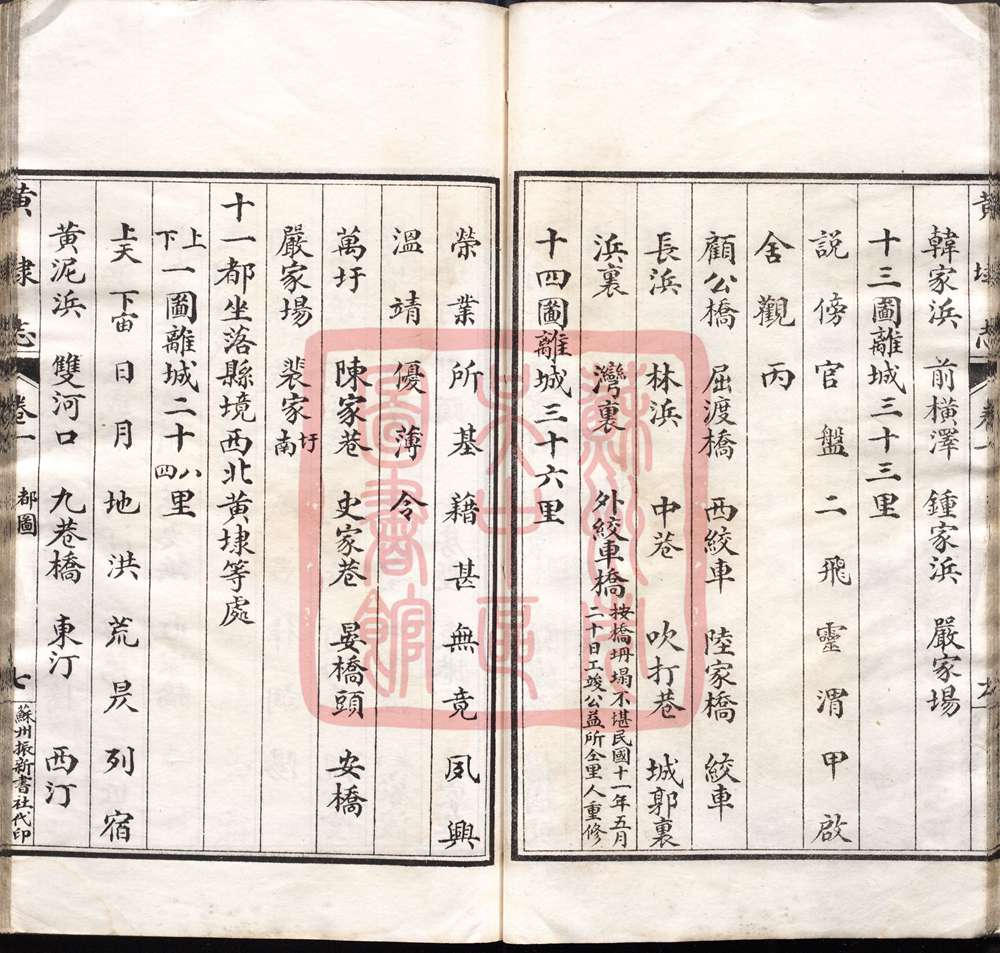 韓家浜 前橫澤 鍾家浜 嚴家場
十三圖離城三十三里
說傍官盤二飛靈渭甲啟
舍觀丙
顧公橋 屈渡橋 西絞車 陸家橋 絞車
長浜 林浜 中巷 吹打巷 城郭裏
浜裏 灣裏 外絞車橋 按橋坍塌不堪民國十一年五月
二十日工竣公益所仝里人重修
十四圖離城三十六里
榮業所基籍甚無竟夙興
溫靖優薄令
萬圩 陳家巷 史家巷 晏橋頭 安橋
嚴家場 裴家圩南
十一都坐落縣境西北黃埭等處
上下一圖離城二十八四里
上天 下宙日月地洪荒昃列宿
黃泥浜 雙河口 九巷橋 東汀 西汀
黃埭志 卷一 都圖 七 蘇州振新書社代印
蘇州市吳中區圖書館